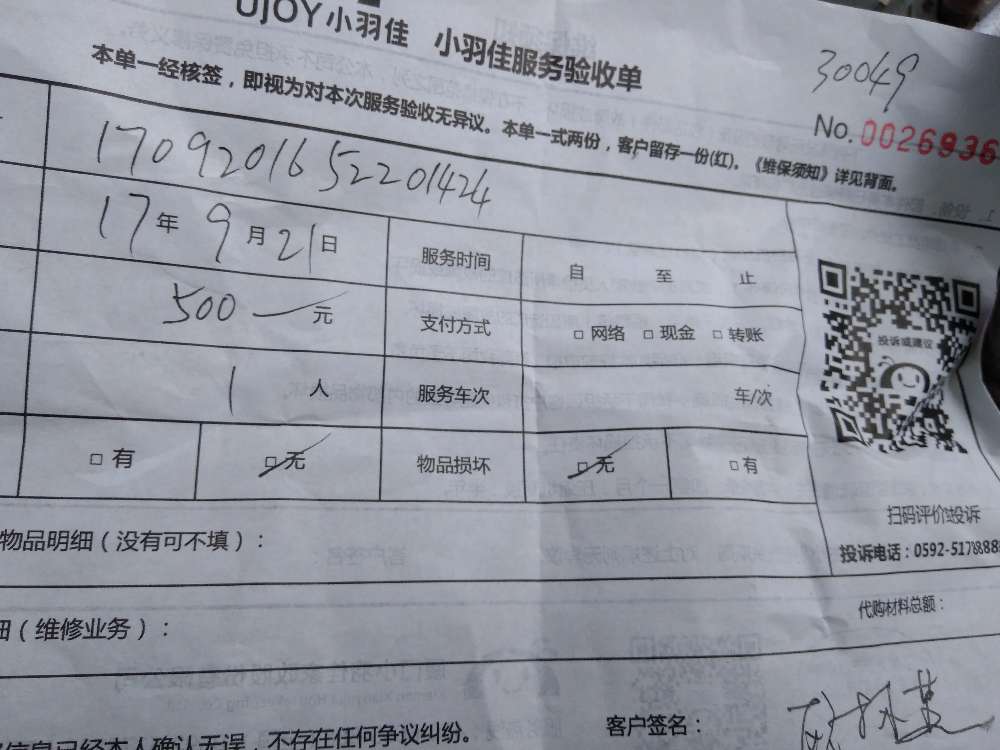 UJOY小羽佳 小羽佳服务验收单
30049
本单一经核签，即视为对本次服务验收无异议。本单一式两份，客户留存一份(红)。《维保须知》详见背面。
No.0026936
17092016522 01424
17年9月21日 服务时间 自 至 止
500 元 支付方式 □网络 □现金 □转账
1 人 服务车次 车/次
□有 □无 物品损坏 □无 □有
投诉或建议
扫码评价或投诉
投诉电话：0592-5178888
物品明细（没有可不填）：
代购材料总额：
细（维修业务）：
信息已经本人确认无误，不存在任何争议纠纷。
客户签名：